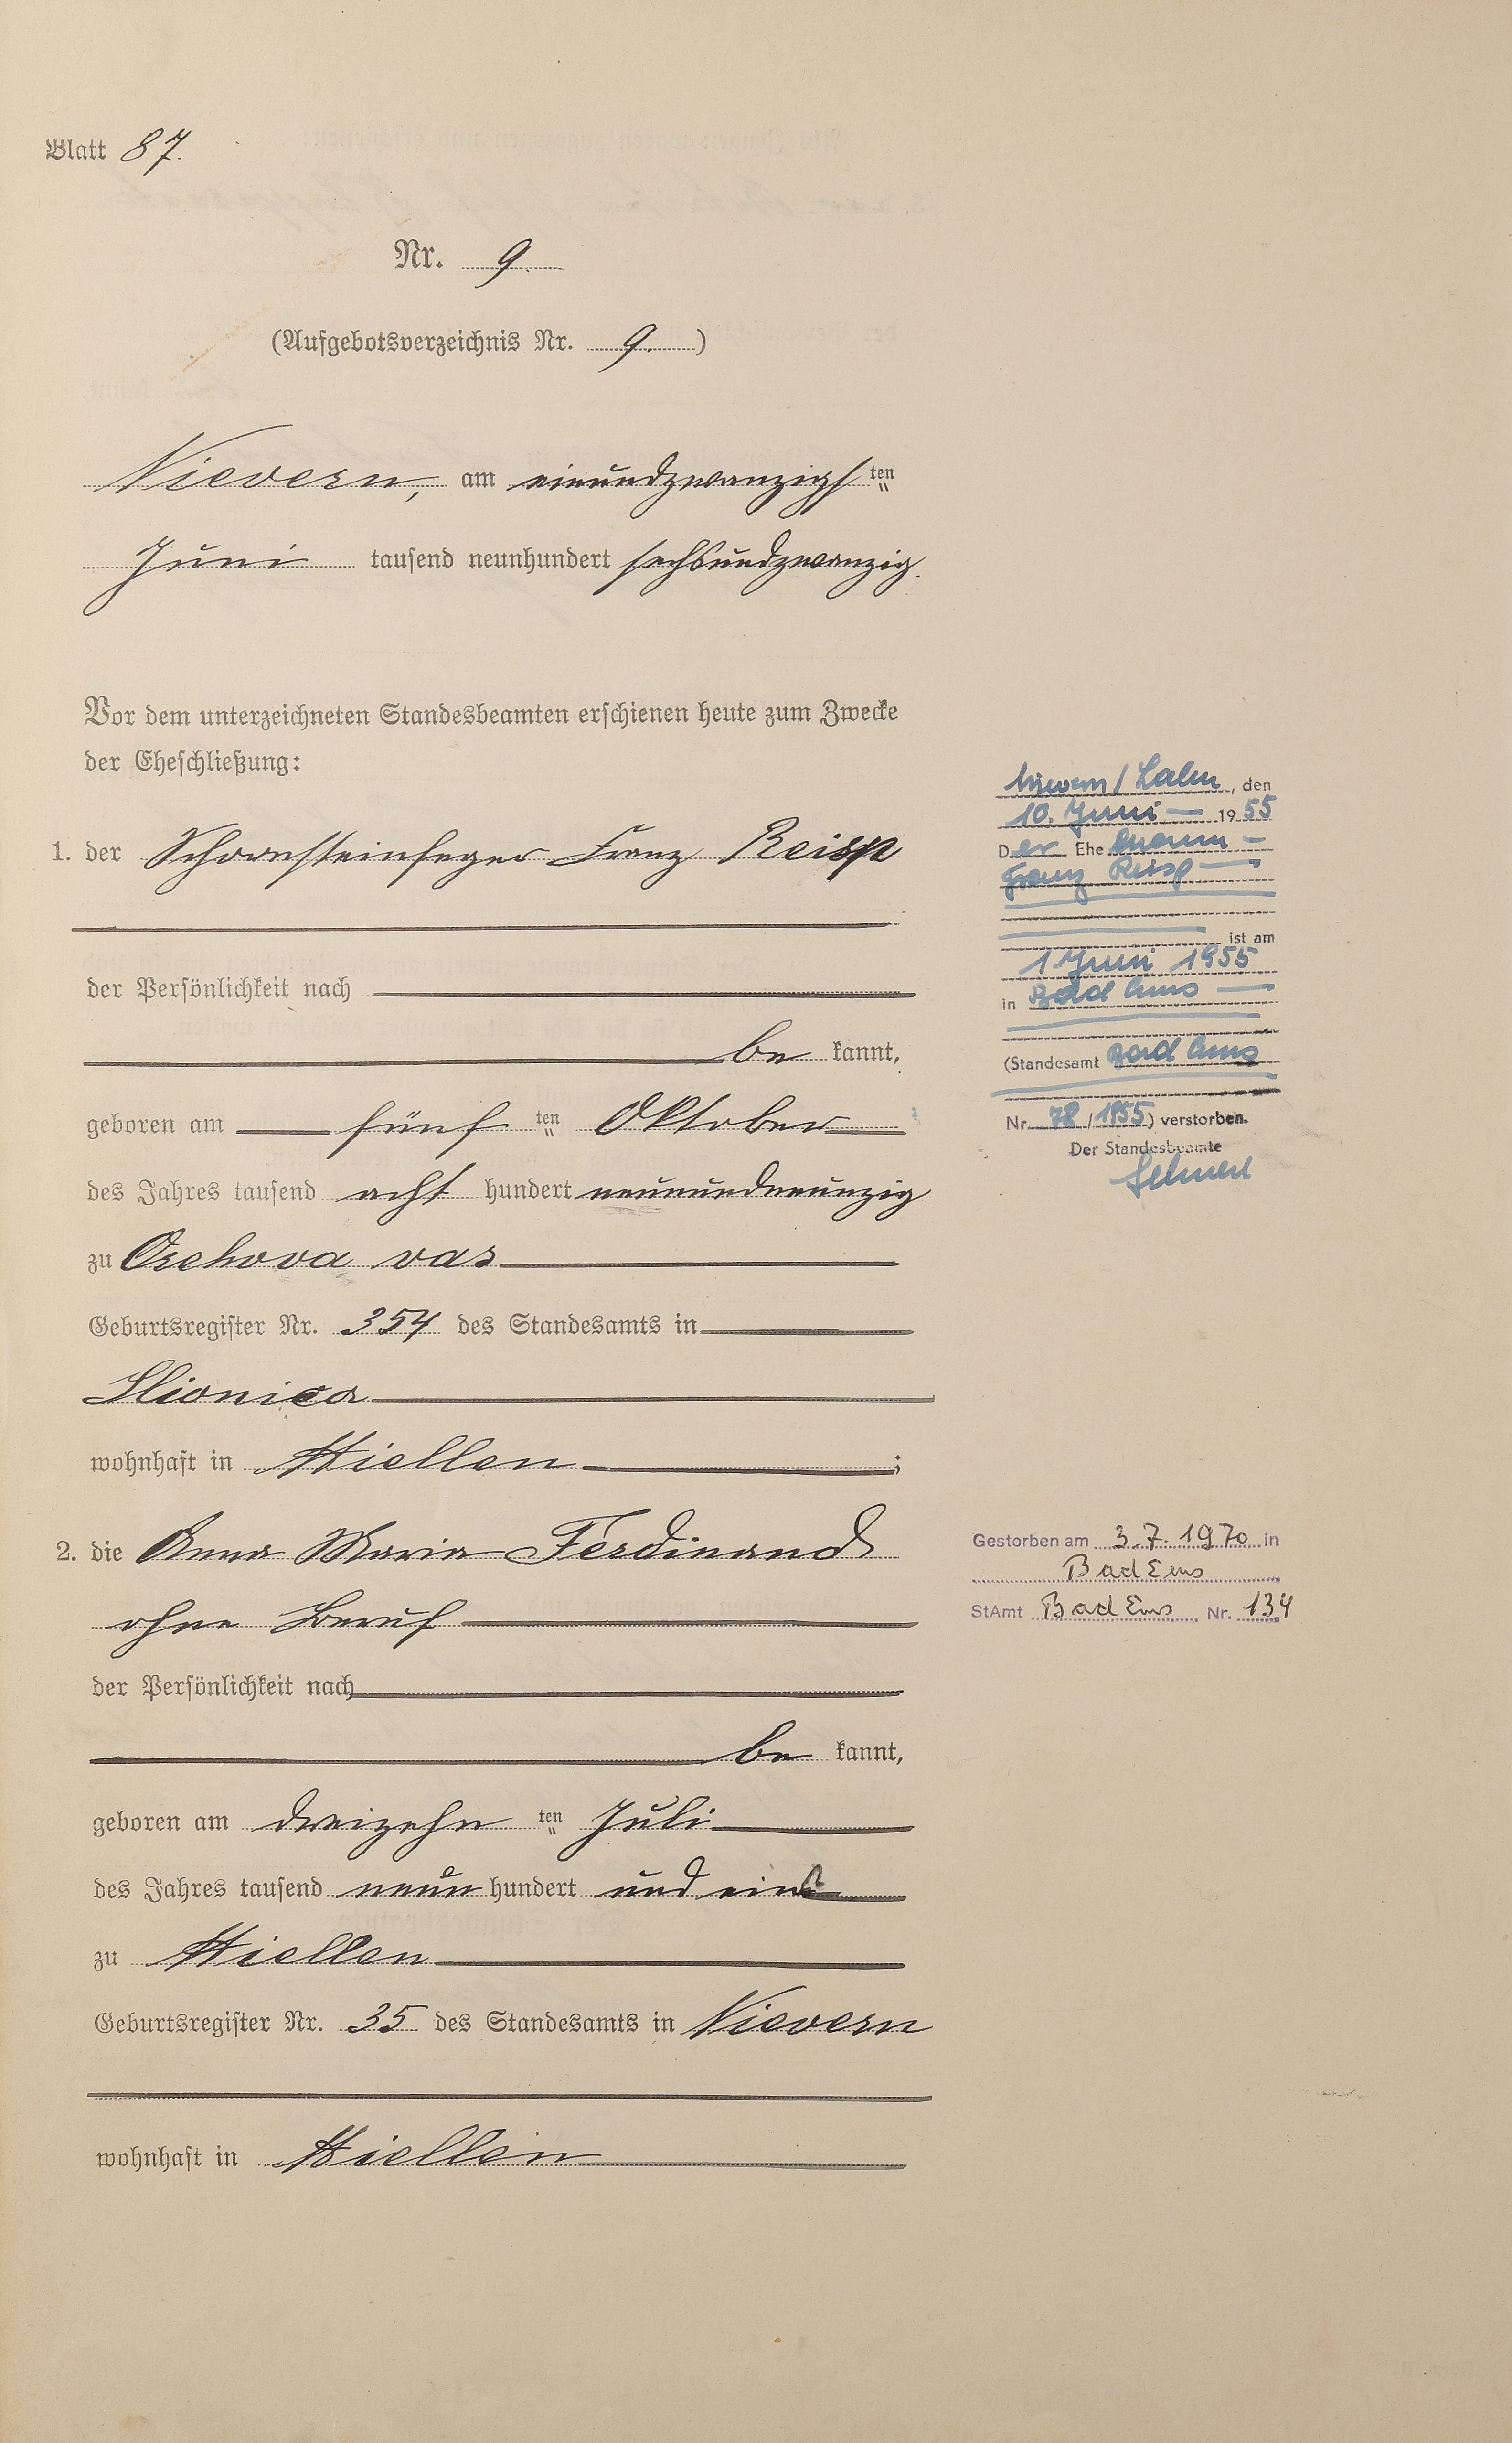 Blatt 87.
Nr. 9
(Aufgebotsverzeichnis Nr. 9.)
Nievern, am einundzwanzigsten
Juni tausend neunhundert sechsundzwanzig.
Vor dem unterzeichneten Standesbeamten erschienen heute zum Zwecke
der Eheschließung:
1. der Schornsteinfeger Franz Reisp
der Persönlichkeit nach
be kannt,
geboren am fünf ten Oktober
des Jahres tausend acht hundert neunundneunzig
zu Orehova vas
Geburtsregister Nr. 354 des Standesamts in
Slionica
wohnhaft in Miellen;
2. die Anna Maria Ferdinand
ohne Beruf
der Persönlichkeit nach
be kannt,
geboren am dreizehn ten Juli
des Jahres tausend neun hundert und eins
zu Miellen
Geburtsregister Nr. 35 des Standesamts in Nievern
wohnhaft in Miellen
Nievern/Lahn, den
10. Juni 1955
Der Ehemann
Franz Reisp
ist am
1. Juni 1955
in Bad Ems
(Standesamt Bad Ems
Nr. 78/1955) verstorben.
Der Standesbeamte
Gestorben am 3.7.1970 in
Bad Ems
StAmt Bad Ems Nr. 134